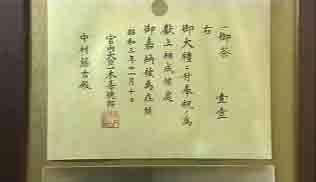 一御茶 壹壺
右
御大禮ニ付奉祝ノ為
獻上相成候處
御嘉納被為在候
昭和三年十一月十日
宮内大臣一木喜徳郎
中村藤吉殿